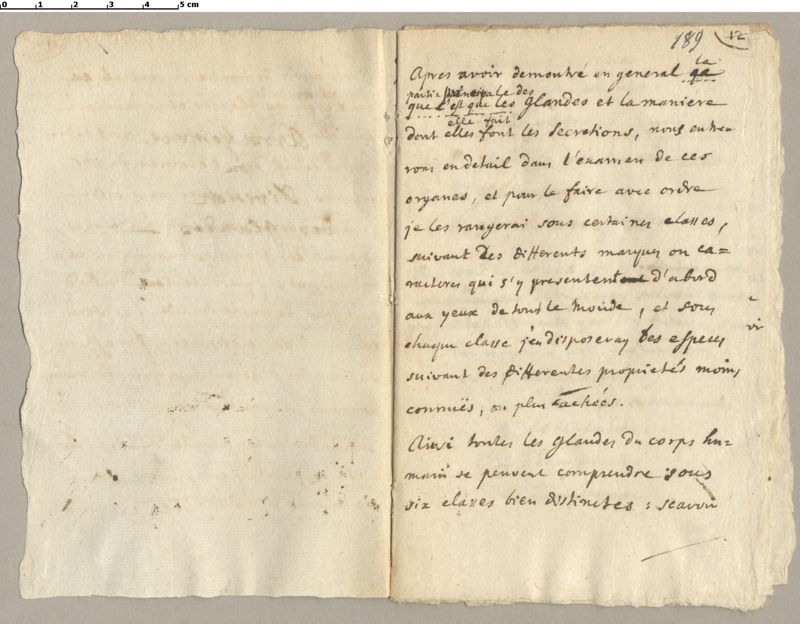 0 1 2 3 4 5 cm
189
Apres avoir demontré en general la
partie principale des
que c'est que les Glandes et la maniere
elle fait
dont elles font les Secretions, nous entre=
rons en detail dans l'examen de ces
organes, et pour le faire avec ordre
je les rangerai sous certaines classes,
suivant des differents marques ou ca=
racteres qui s'y presentent d'abord
aux yeux de tout le Monde, et sous
chaque classe j'en disposeray des especes
suivant des differentes proprietés moins
connuës, ou plus cachées.
Ainsi toutes les Glandes du corps hu=
main se peuvent comprendre sous
six classes bien distinctes : scavoir